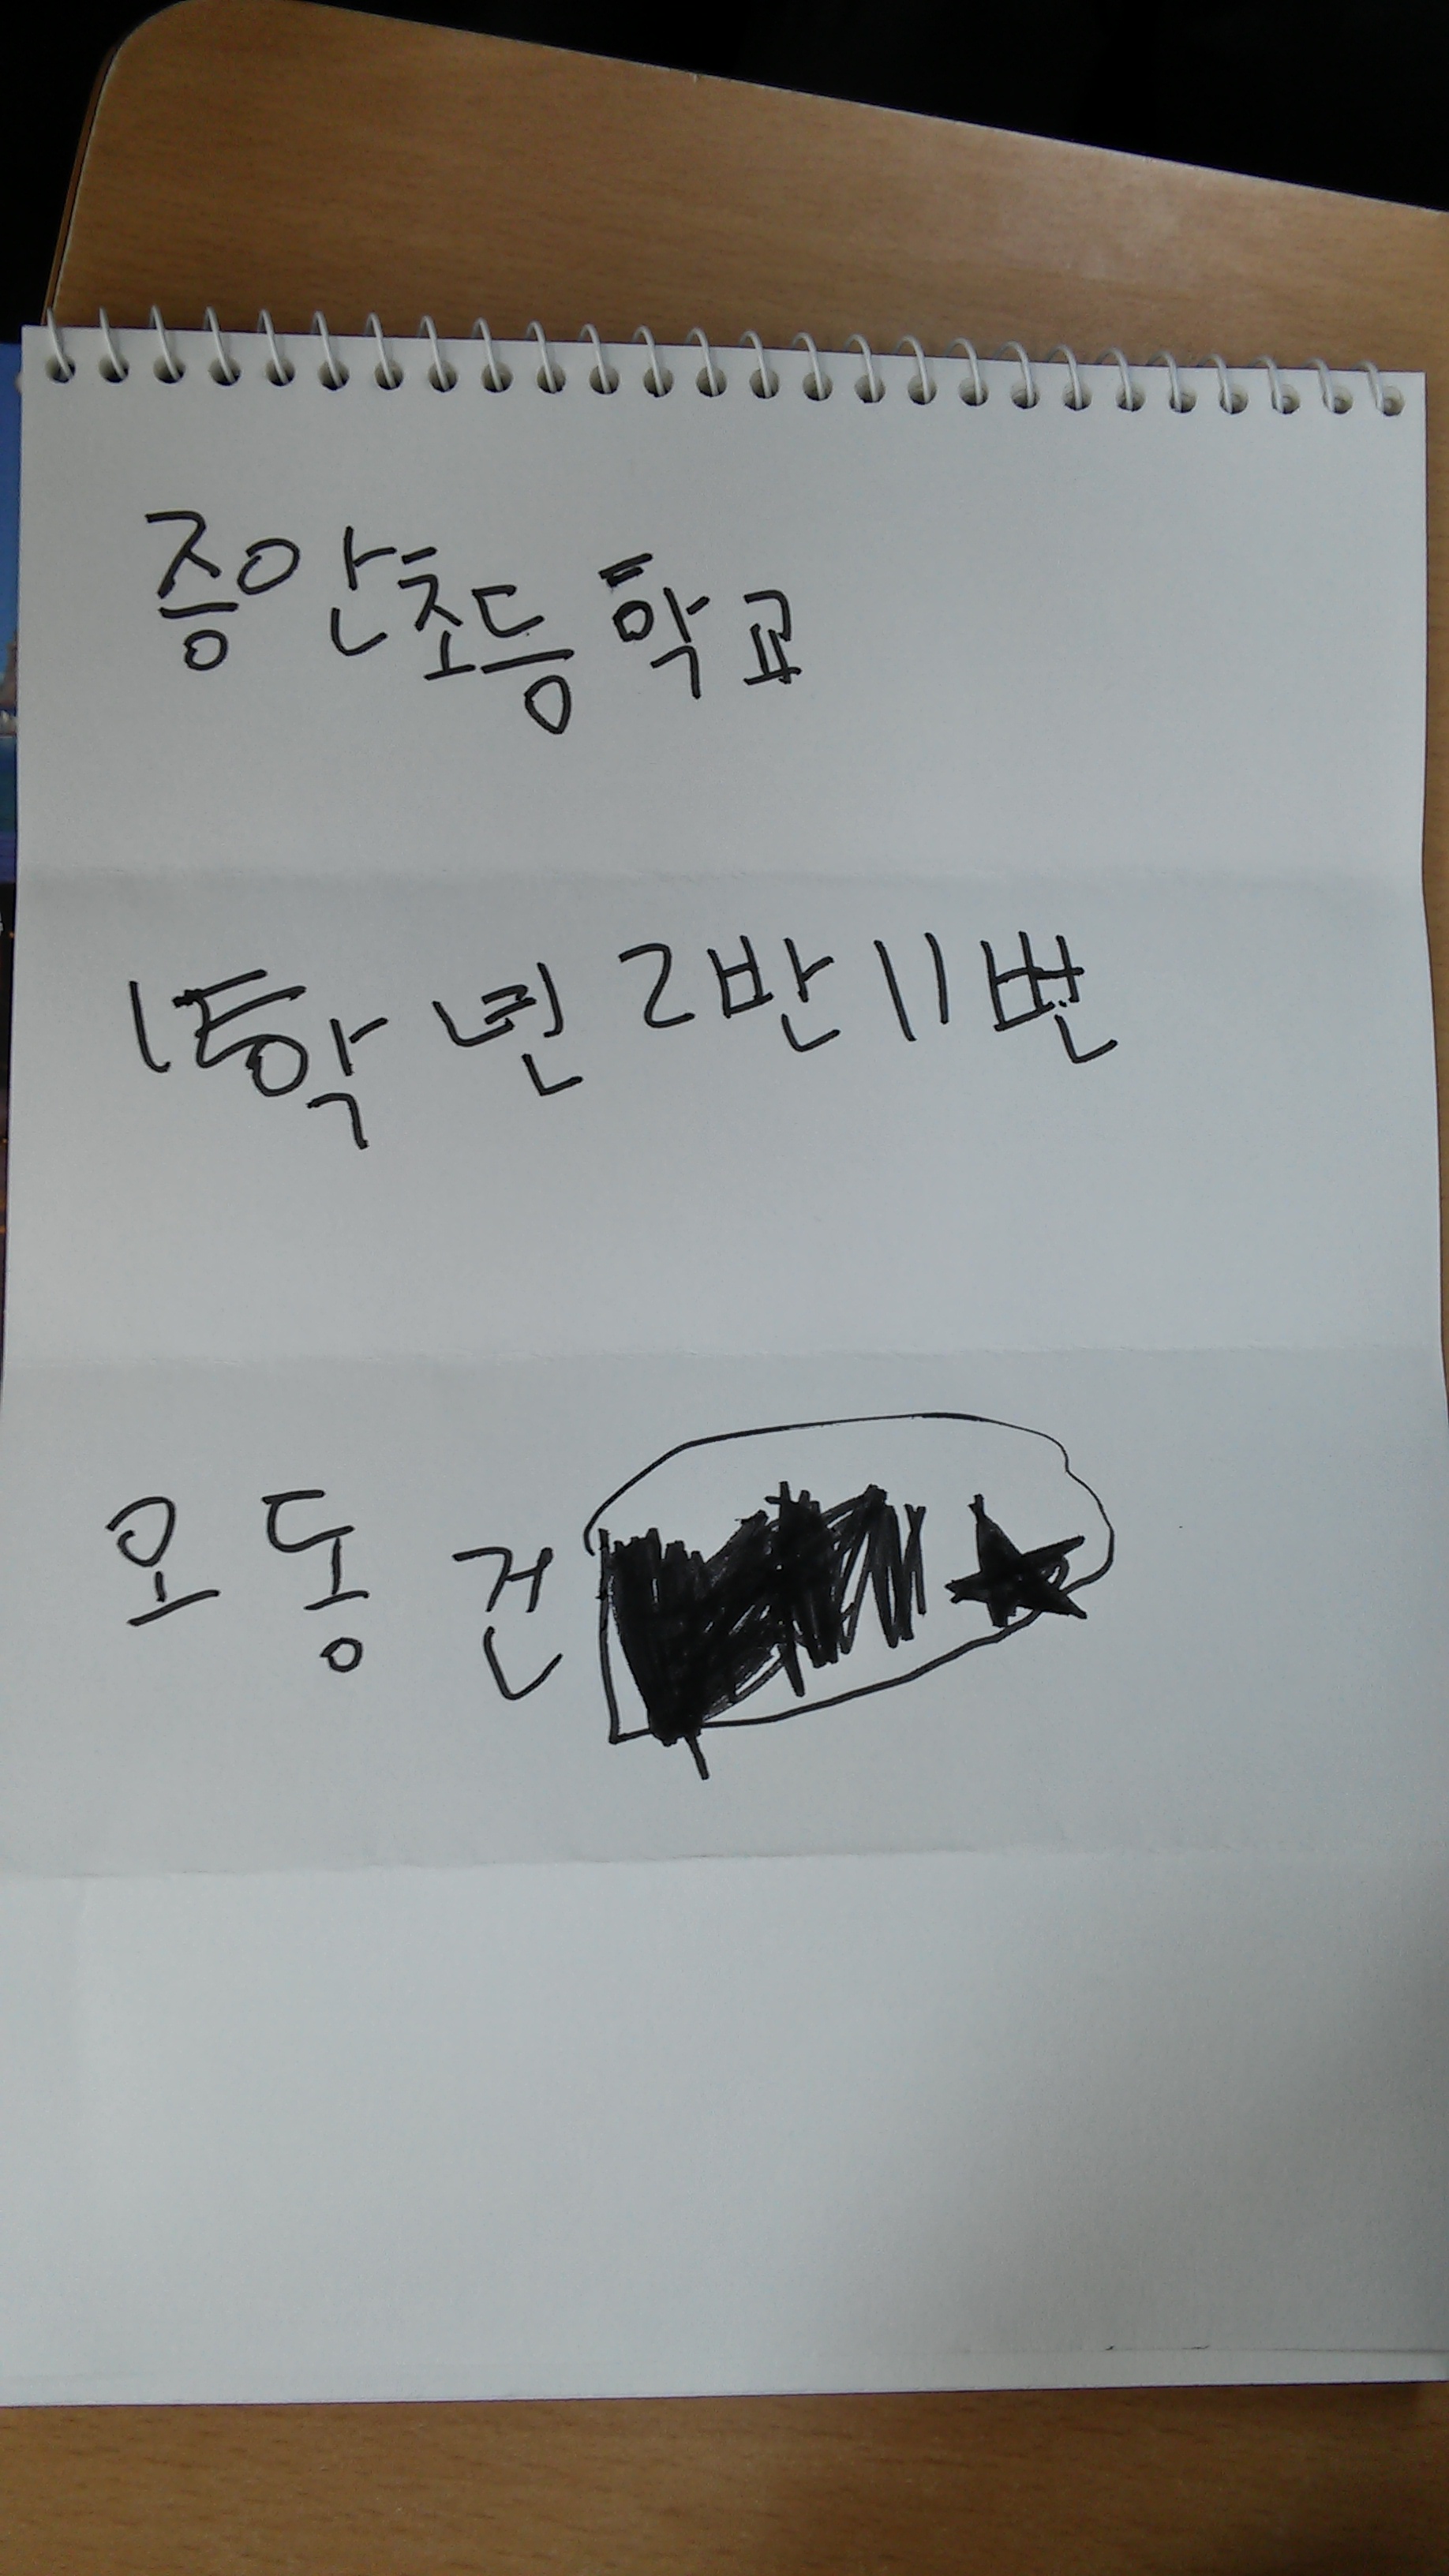 증안초등학교
1학년 2반 11번
오동건